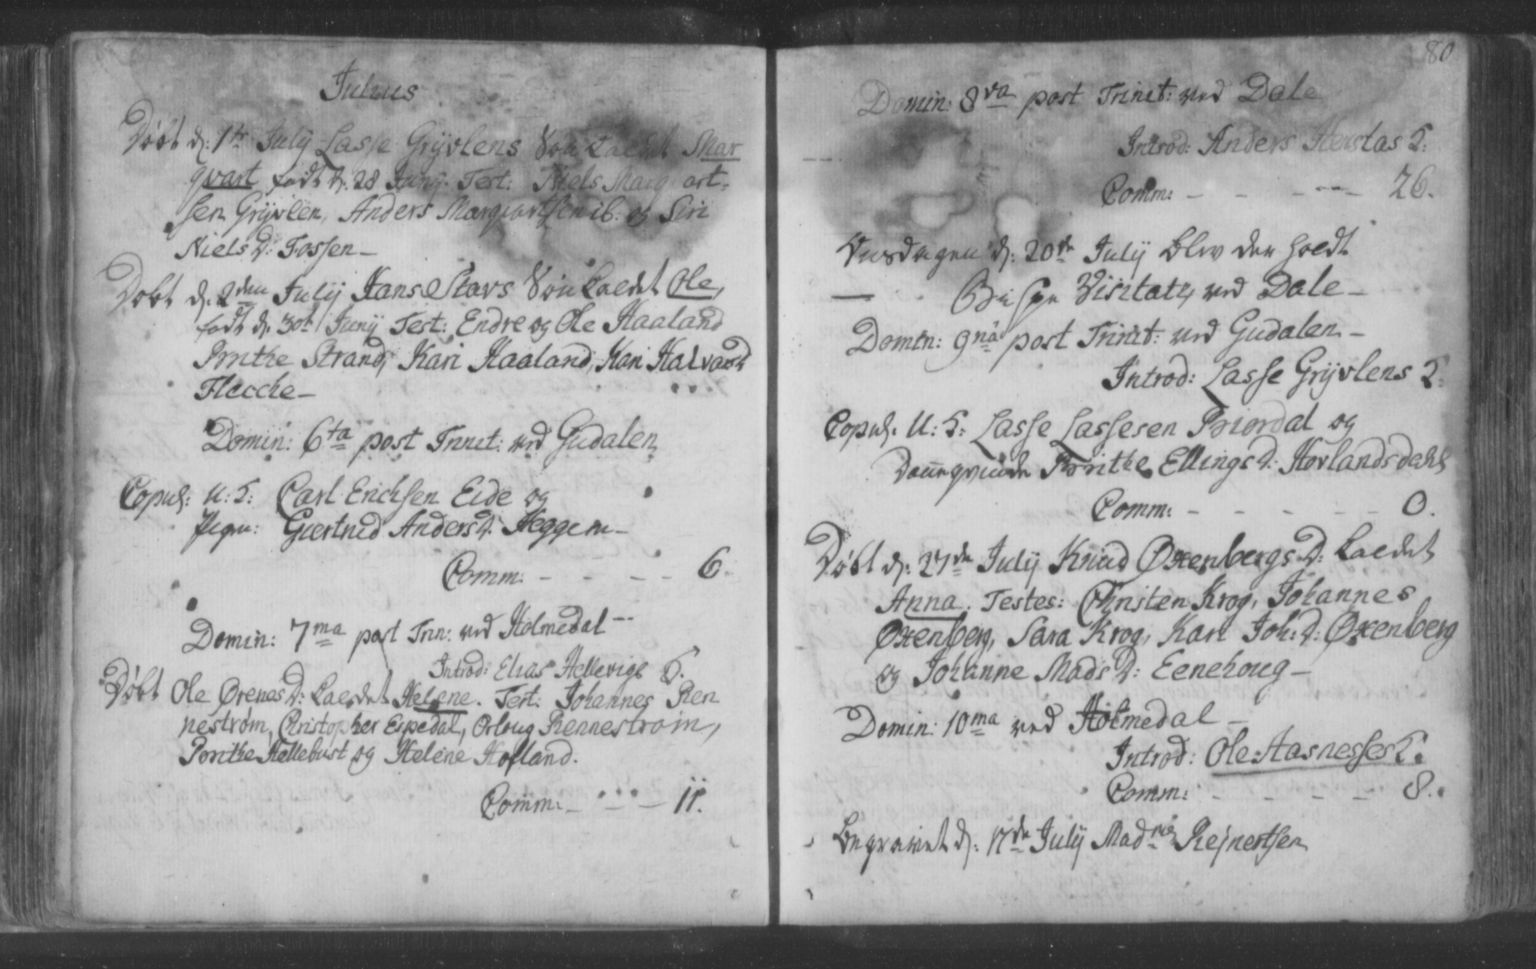 Julius
Døbt d: 1te Julij Lasse Grijvlens Søn kaldet Mar
qvart født d. 28 Junij. Test: Niels Marqvart:
sen Grijvlen, Anders Marqvartsen ib: og Siri
Niels D: Fossen_
Døbt d. 2den Julij Hans Stavs Søn kaldet Ole,
født d. 30t Junij Test: Endre og Ole Haaland
Brithe Strand, Kari Haaland, Kari Halvard
Flecche_
Domin: 6ta post Trinit: ved Gudalen
Copul: U: F: Carl Erichsen Eide og
Pigen: Giertrud Anders D: Heggem_
Comm: - - - - 6.
Domin: 7ma post Trin: ved Holmedal -
Introd: Elias Hellevigs F.
Døbt Ole Ørenes D: kaldet Helene. Test: Johannes Ren
nestrøm, Christopher Espedal, Orloug Rennestrøm,
Brithe Hellebust og Helene Hofland.
Comm: - - - - 11.
80
Domin: 8va post Trinit: ved Dale
Introd: Anders Herstas F:
Comm: - - - - 26.
Onsdagen d: 20de Julij blev der holdt
Bispe Visitatz ved Dale_
Domin: 9na post Trinit: ved Gudalen_
Introd: Lasse Grijvlens F:
Copul: U: F: Lasse Lassesen Biordal og
Dannequinde Brithe Ellings D: Hovlandsdahl
Comm: - - - - - 0.
Døbt d: 27de Julij Knud Oxenbergs D: kaldet
Anna. Testes: Christen Krog, Johannes
Oxenberg, Sara Krog, Kari Joh: D: Oxenberg
og Johanne Mads D: Eenehoug_
Domin: 10ma ved Holmedal_
Introd: Ole Aasnesses F:
Comm: - - - - 8.
Begravet d: 17de Julij Mad: Rejnertsen